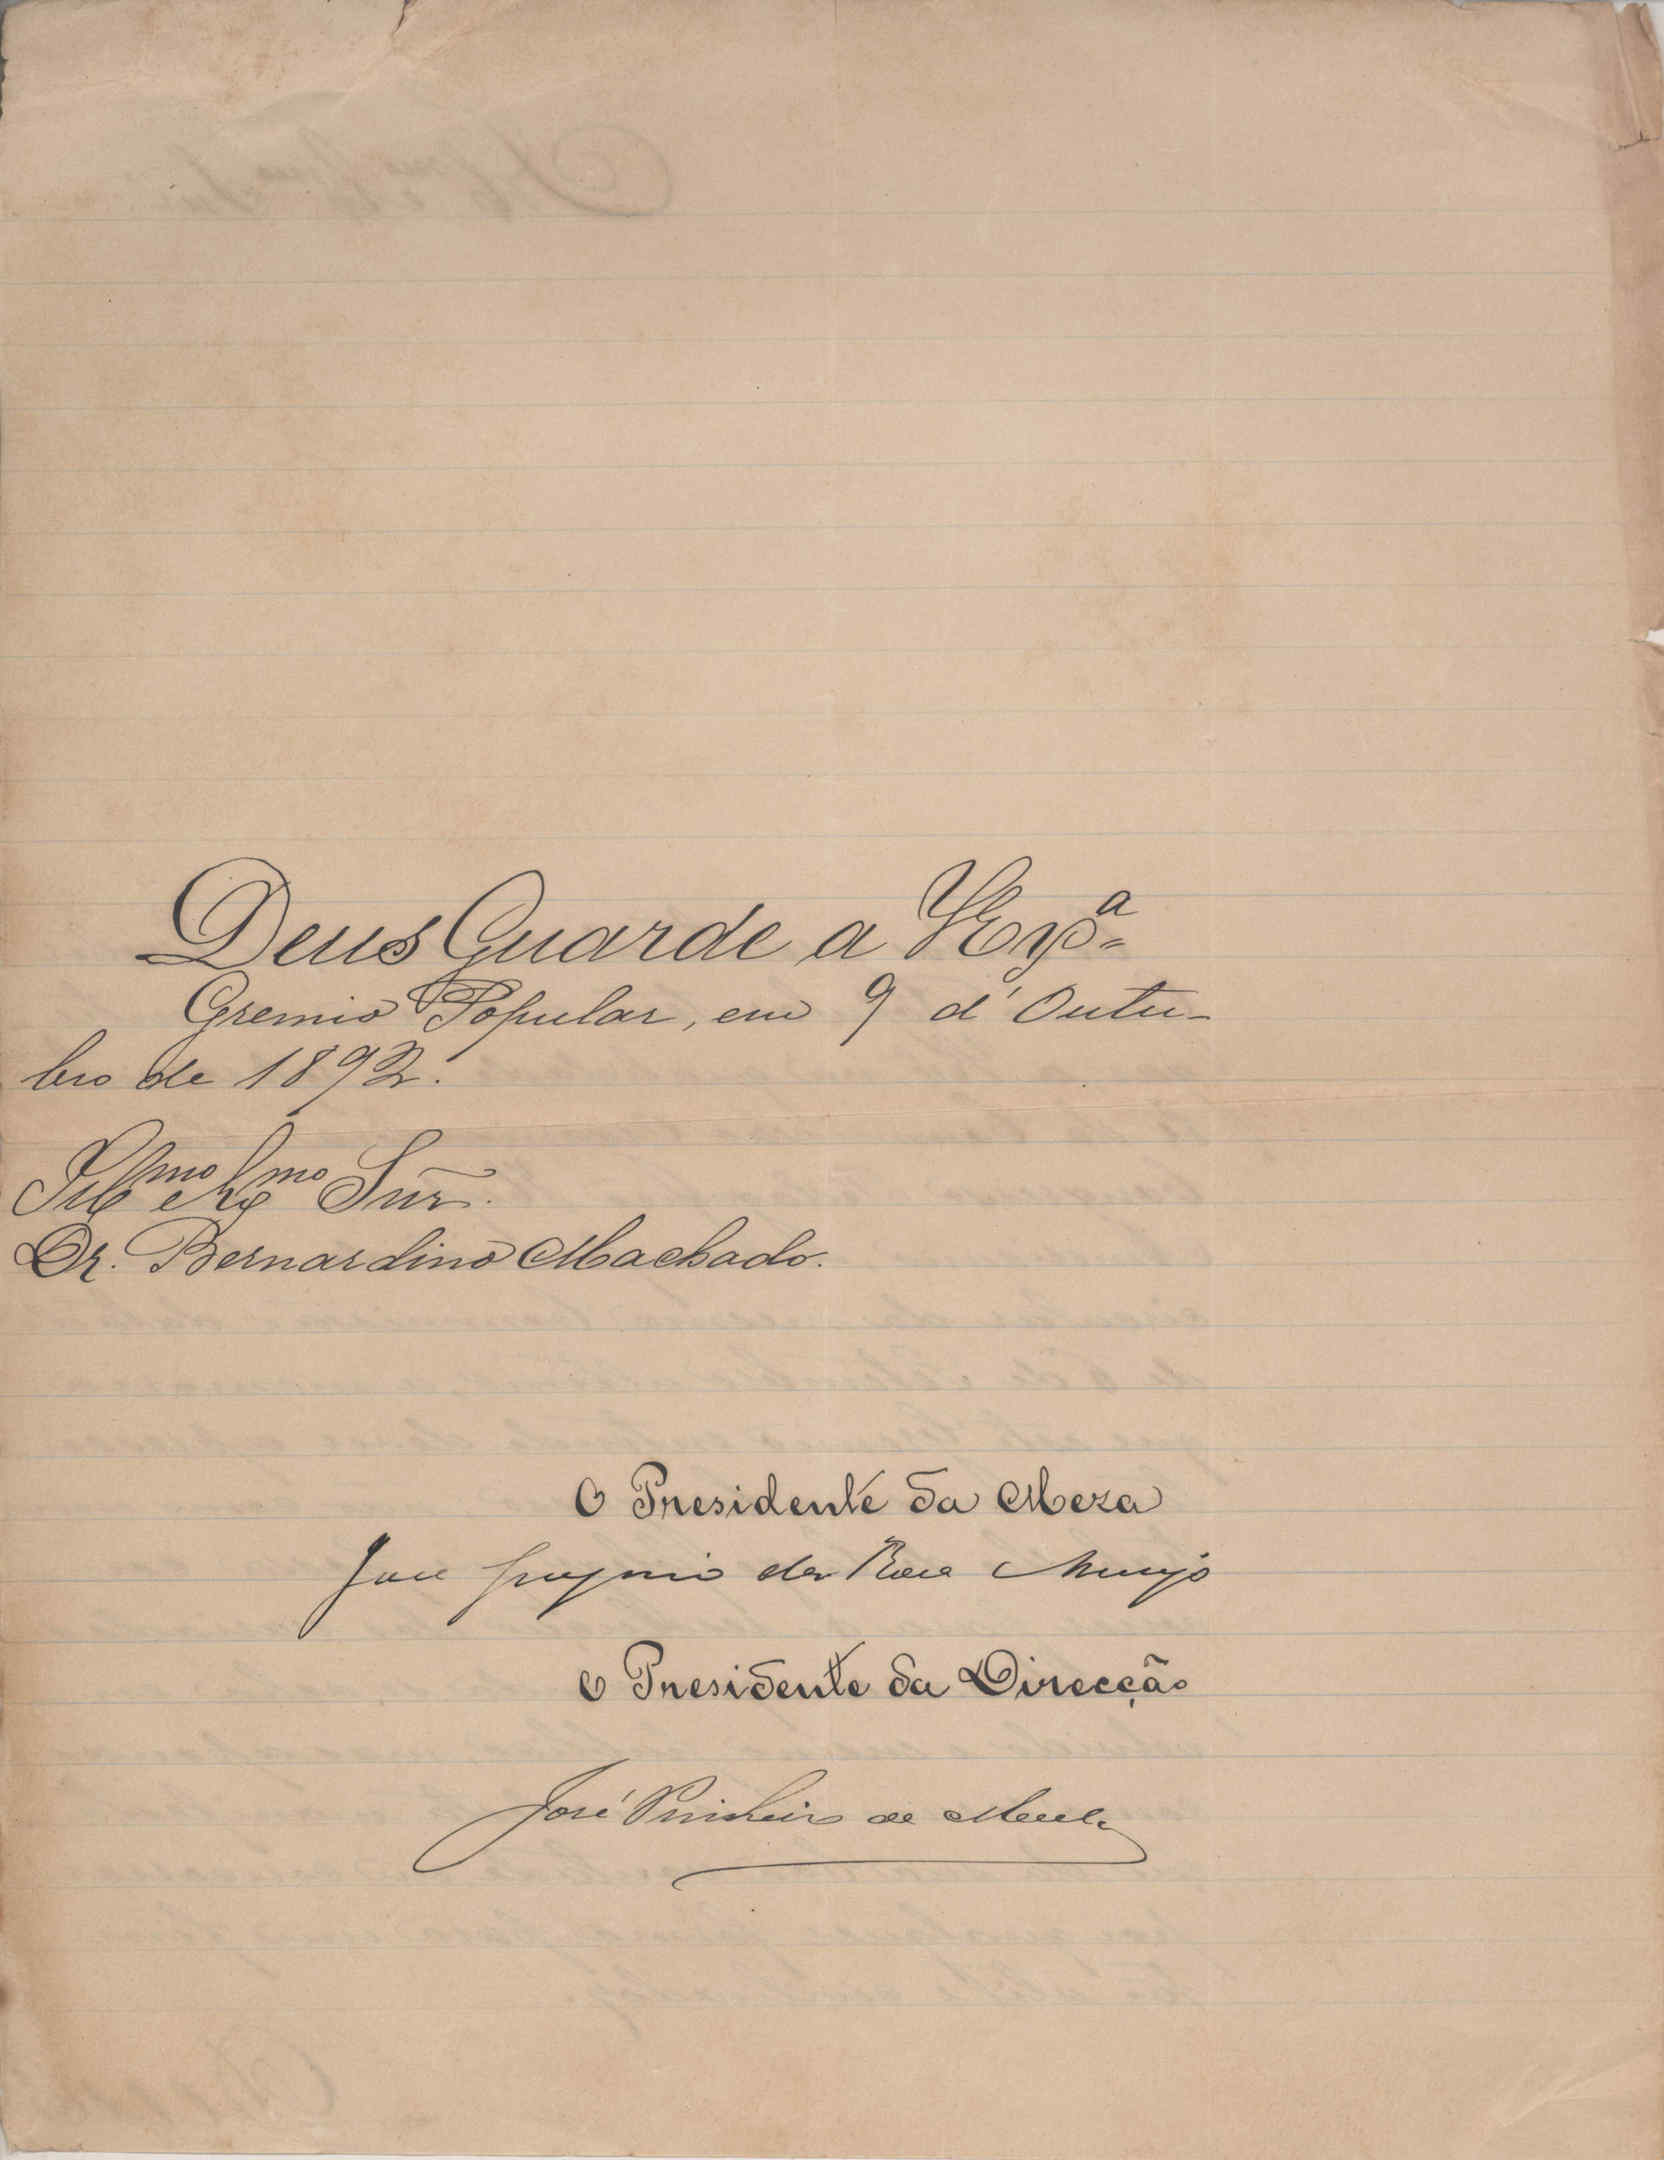 Deus Guarde a V Exª
Gremio Popular, em 9 d'Outu-
bro de 1892.
Illmo e Exmo Snr.
Dr. Bernardino Machado.
O Presidente da Meza
José Gregorio da Rosa Araujo
O Presidente da Direcção
José Pinheiro de Mello